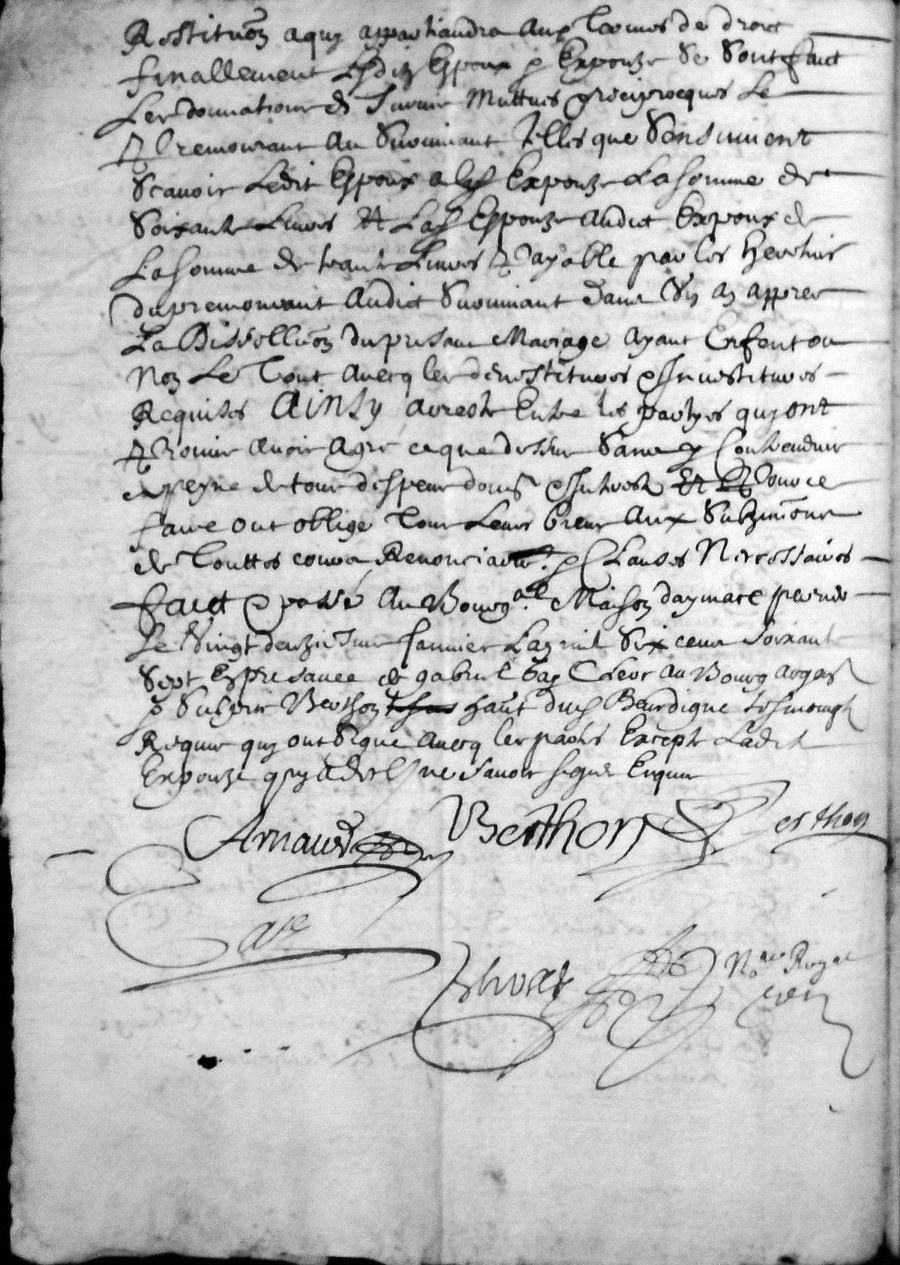 Restitu͠on a quy appartiendra aux termes de droit
finallement Lesditz Espoux & Expouze se sont faict
Les donnations de survie Muttues & reciprocques Le
premourant au survivant telles que sensuivent
Scavoir Ledit Espoux a lad Expouze La somme de
Soixante Livres Et Lad Espouze audict Expoux de
La somme de trante Livres payable par les herettiers
du premourant audict survivant dans un an appres
La Dissollu͠on du presant Mariage ayant Enfent ou
Non Le tout avecq les devestitures & Investitures
Requises Ainsy arresté Entre les partyes quy ont
promis avoir agre ce que dessus sans y contrevenir
a peyne de tous despens dom & Interestz Et pour ce
faire ont oblige tous Leurs biens aux submi͠ons
de touttes cours Renonciations & Clauses Necessaires
faict & passé au Bourg Maison daymare
Le vingt deuziesme Janvier Lan mil six cens soixante
Sept Es presance de gabriel Gay Clerc au Bourg argal
& Berthon hault dud Beurdigne tesmoingz
Requis quy ont signé avecq les parties Excepté Ladite
Expouze quy a declé ne scavoir signer Enquis
Arnaud Berthon Berthon
Gay
No͠re Royal